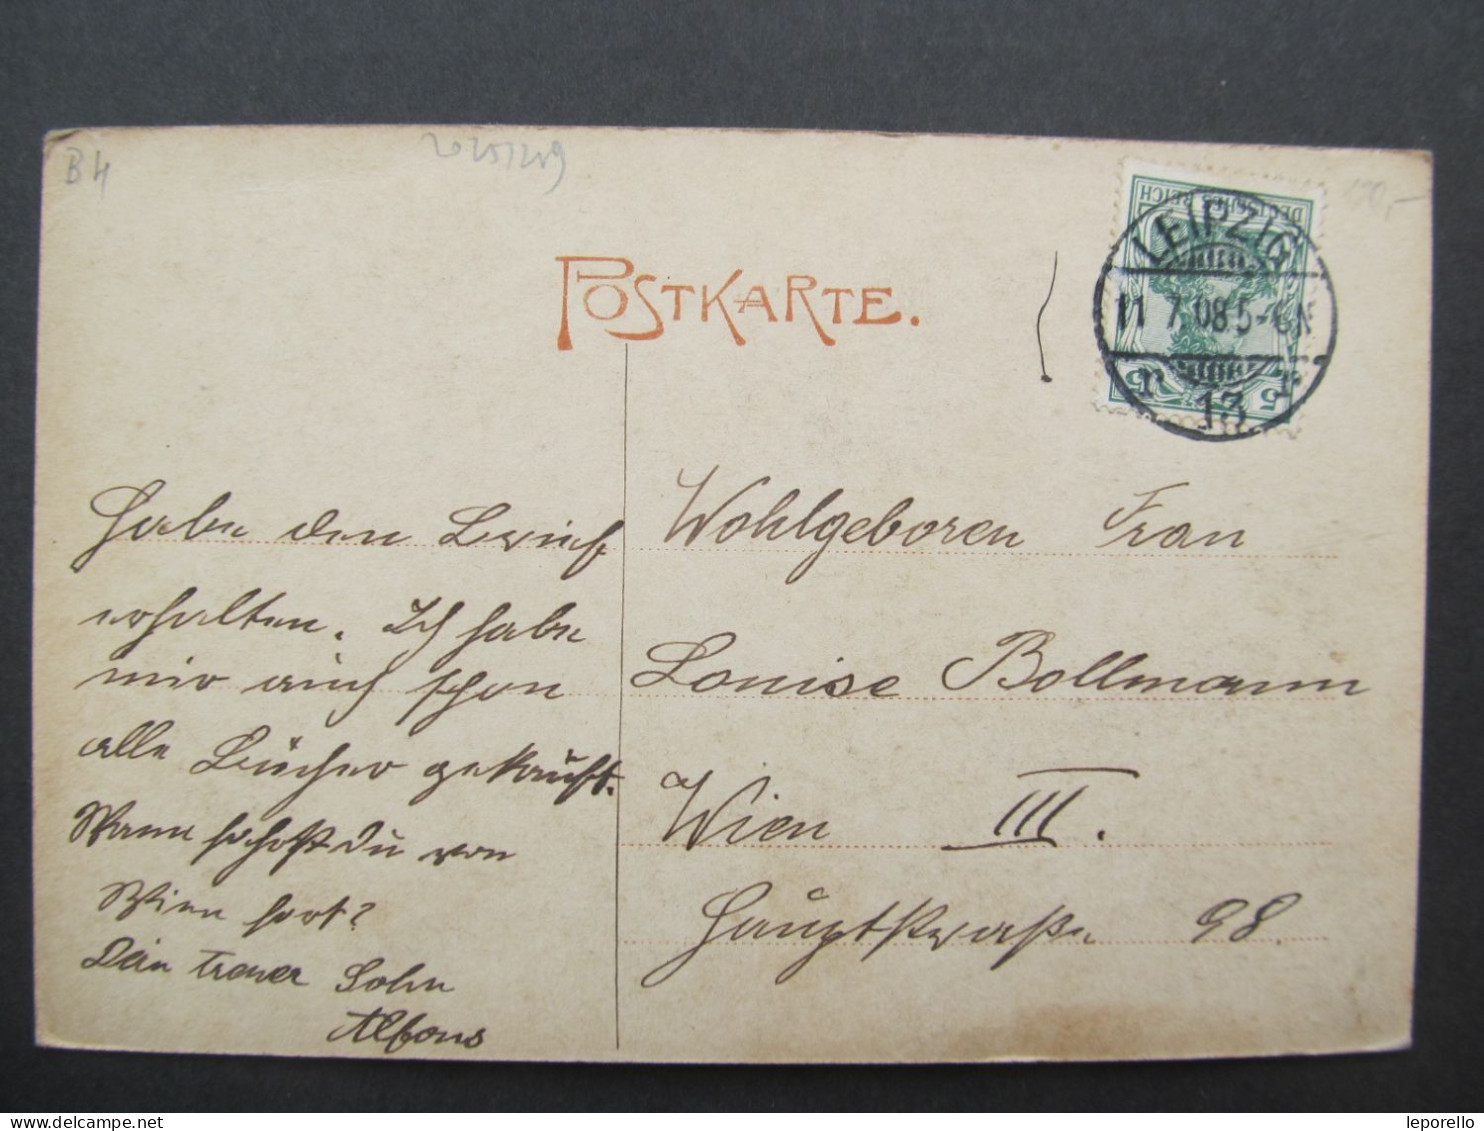 B4
20251209
POSTKARTE.
DEUTSCHES REICH
LEIPZIG
11 7.08 5-6N
13
5 5
Habe den Brief
erhalten. Ich habe
mir auch schon
alle Bücher gekauft.
Wann fährst du von
Wien fort?
Dein treuer Sohn
Alfons
Wohlgeboren Frau
Louise Bollmann
Wien III.
Hauptstraße 98.
leporello